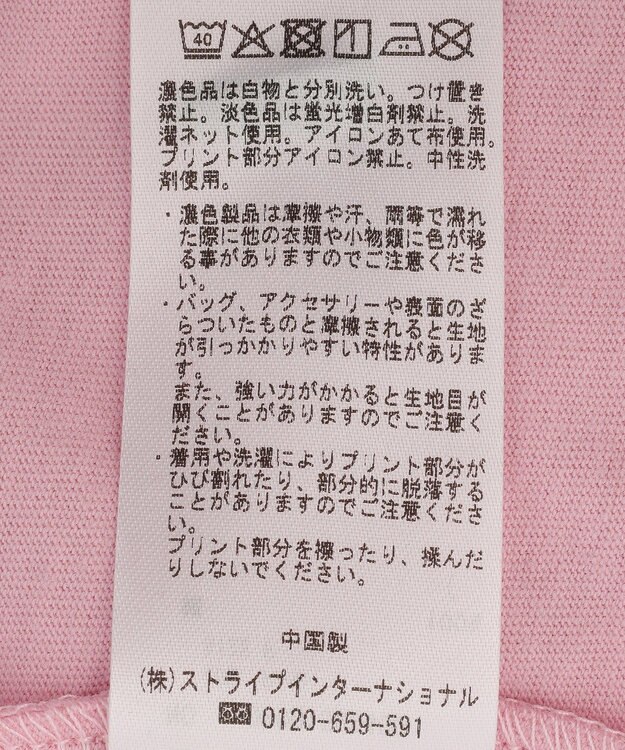 40
濃色品は白物と分別洗い。つけ置き
禁止。淡色品は蛍光増白剤禁止。洗
濯ネット使用。アイロンあて布使用。
プリント部分アイロン禁止。中性洗
剤使用。
・濃色製品は摩擦や汗、雨等で濡れ
た際に他の衣類や小物類に色が移
る事がありますのでご注意くださ
い。
・バッグ、アクセサリーや表面のざ
らついたものと摩擦されると生地
が引っかかりやすい特性がありま
す。
また、強い力がかかると生地目が
開くことがありますのでご注意く
ださい。
・着用や洗濯によりプリント部分が
ひび割れたり、部分的に脱落する
ことがありますのでご注意くださ
い。
プリント部分を擦ったり、揉んだ
りしないでください。
中国製
(株)ストライプインターナショナル
0120-659-591